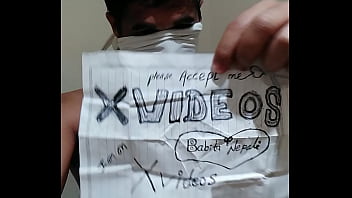 please Accept me
XVIDEOS
Babiti Nepali
I am on
Xvideos